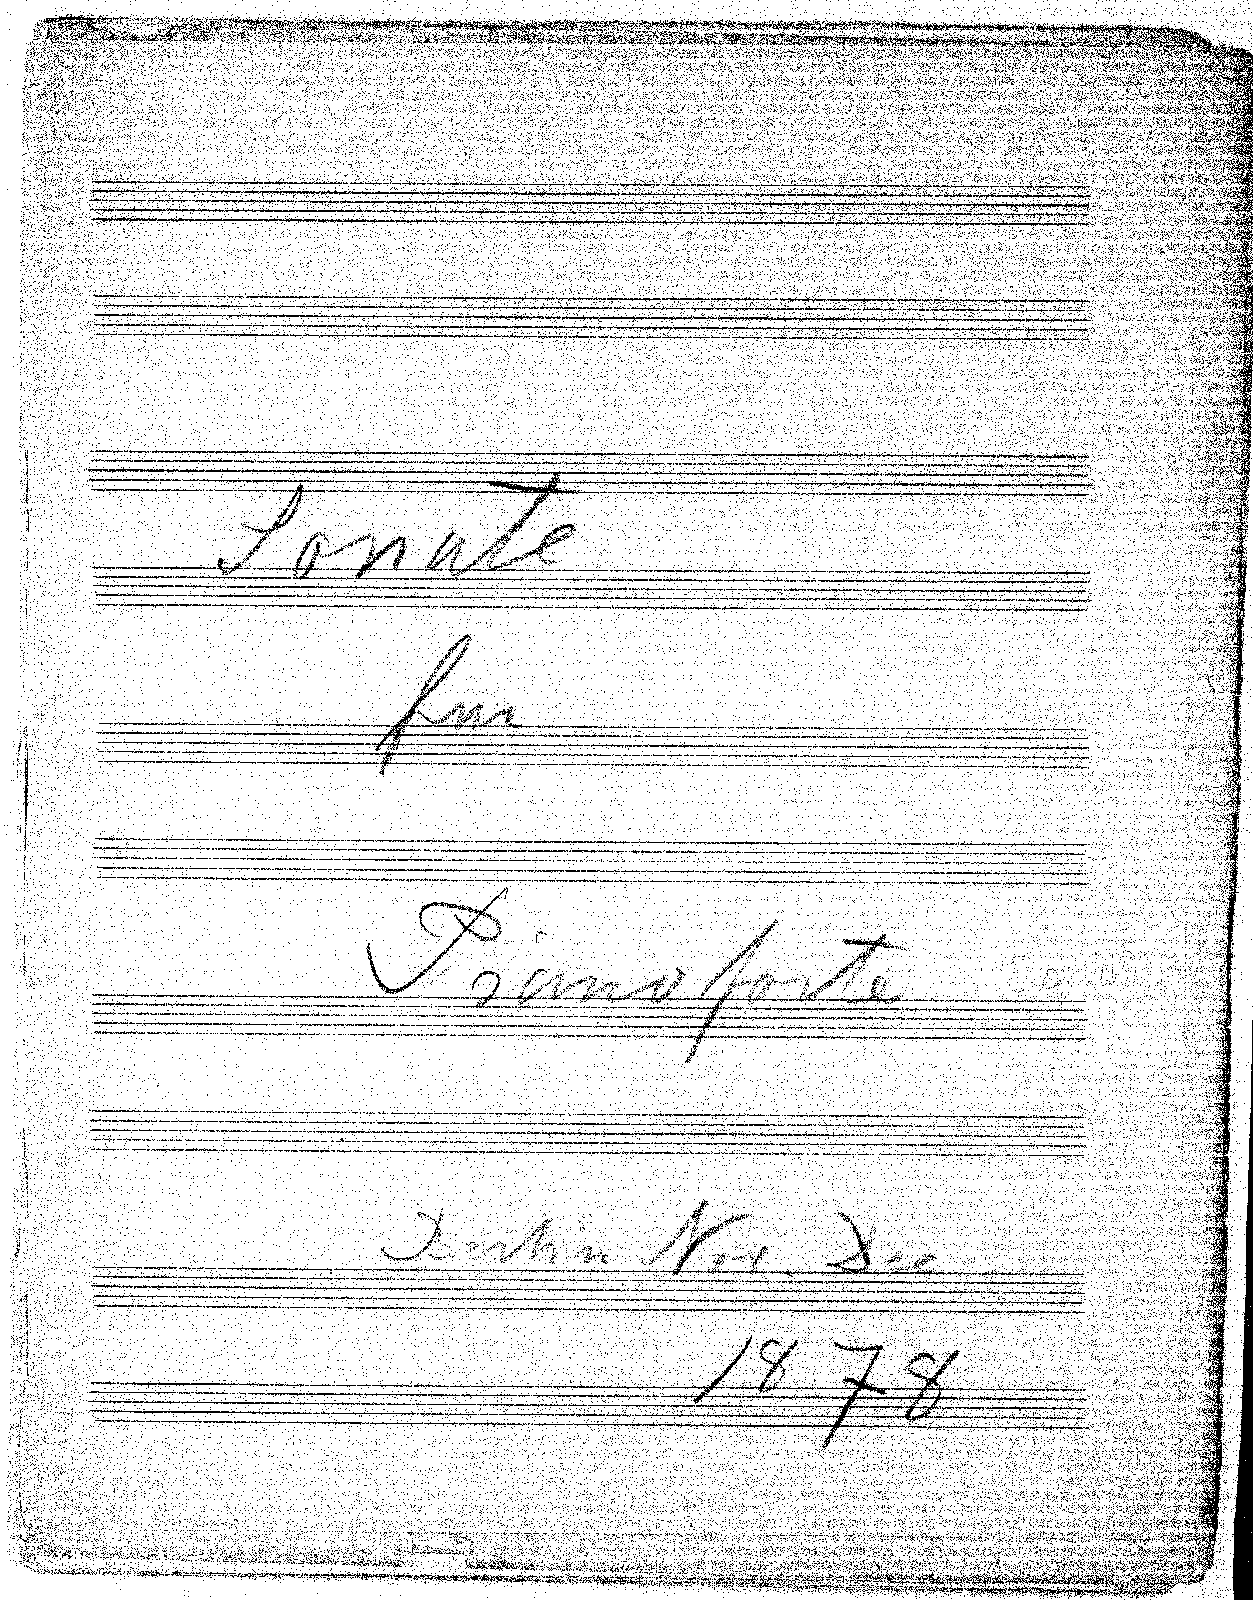 Sonate
für
Pianoforte
Berlin Nov. Dec
1878